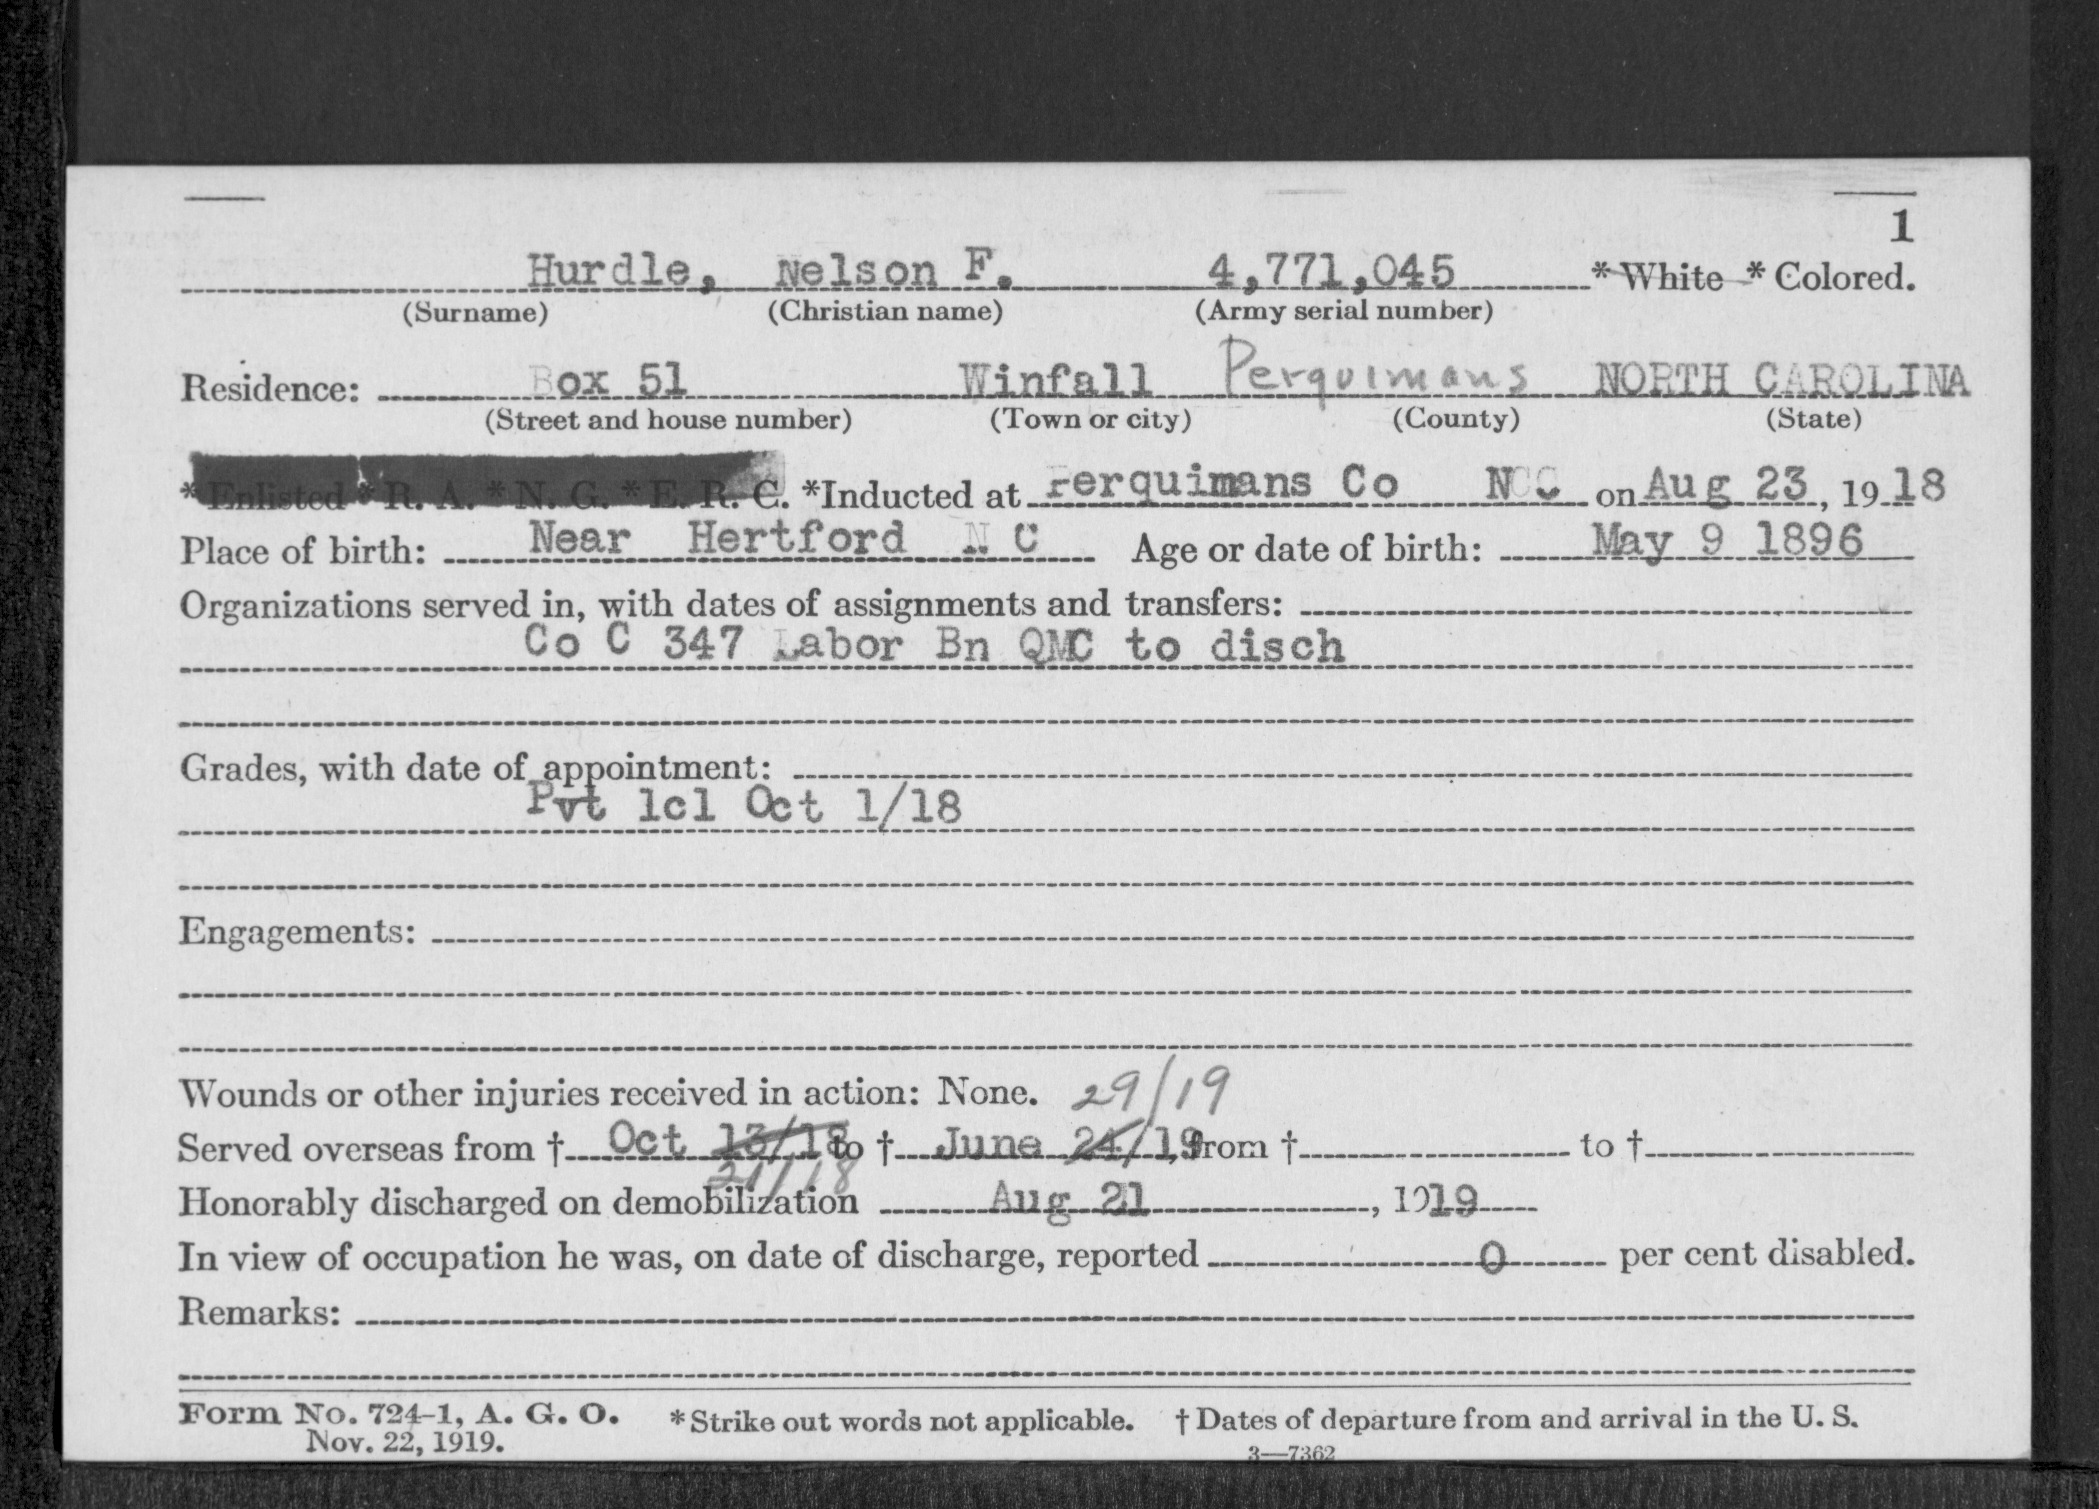 1
Hurdle, Nelson F. 4,771,045 * White * Colored.
(Surname) (Christian name) (Army serial number)
Residence: Box 51 Winfall Perquimans NORTH CAROLINA
(Street and house number) (Town or city) (County) (State)
* Enlisted * R. A. * N. G. * E. R. C. *Inducted at Perquimans Co N C on Aug 23, 1918
Place of birth: Near Hertford N C Age or date of birth: May 9 1896
Organizations served in, with dates of assignments and transfers:
Co C 347 Labor Bn QMC to disch
Grades, with date of appointment:
Pvt 1cl Oct 1/18
Engagements:
Wounds or other injuries received in action: None. 29/19
Served overseas from † Oct 13/18 to † June 24/19, from † to †
21/18
Honorably discharged on demobilization Aug 21, 1919
In view of occupation he was, on date of discharge, reported 0 per cent disabled.
Remarks:
Form No. 724-1, A. G. O. * Strike out words not applicable. † Dates of departure from and arrival in the U. S.
Nov. 22, 1919.
3—7362